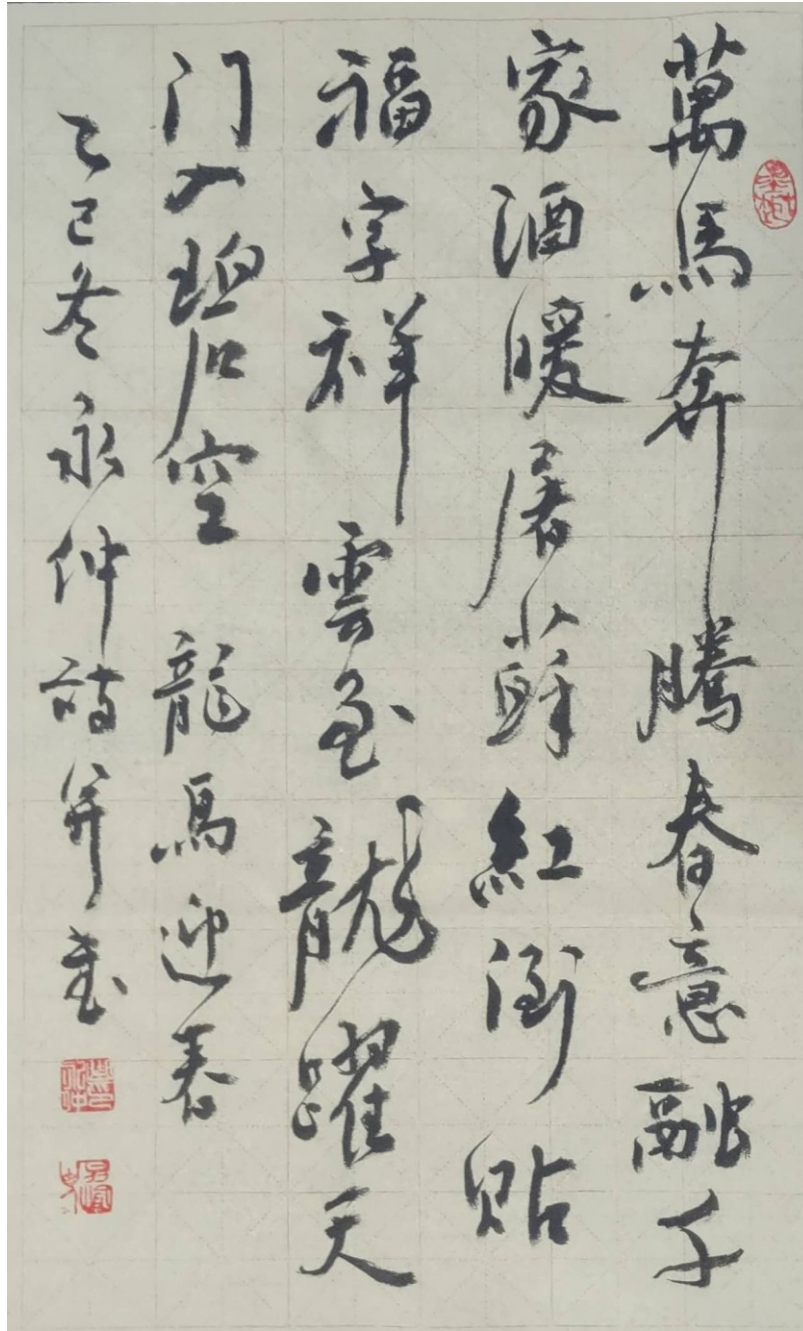 萬馬奔騰春意融千
家酒暖屠蘇紅倒贴
福字祥雲至龍躍天
门入碧空 龍馬迎春
乙巳冬永仲詩并書